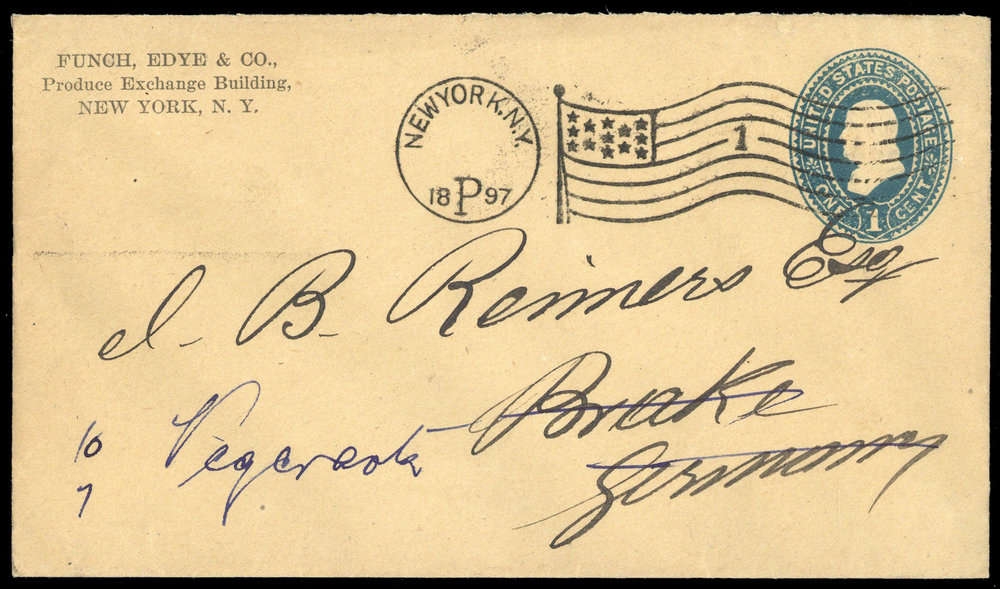 FUNCH, EDYE & CO.,
Produce Exchange Building,
NEW YORK, N. Y.
NEW YORK, N.Y.
18 P 97
1
UNITED STATES POSTAGE
ONE 1 CENT
B. Reiners Esq
Brake
Germany
10
7